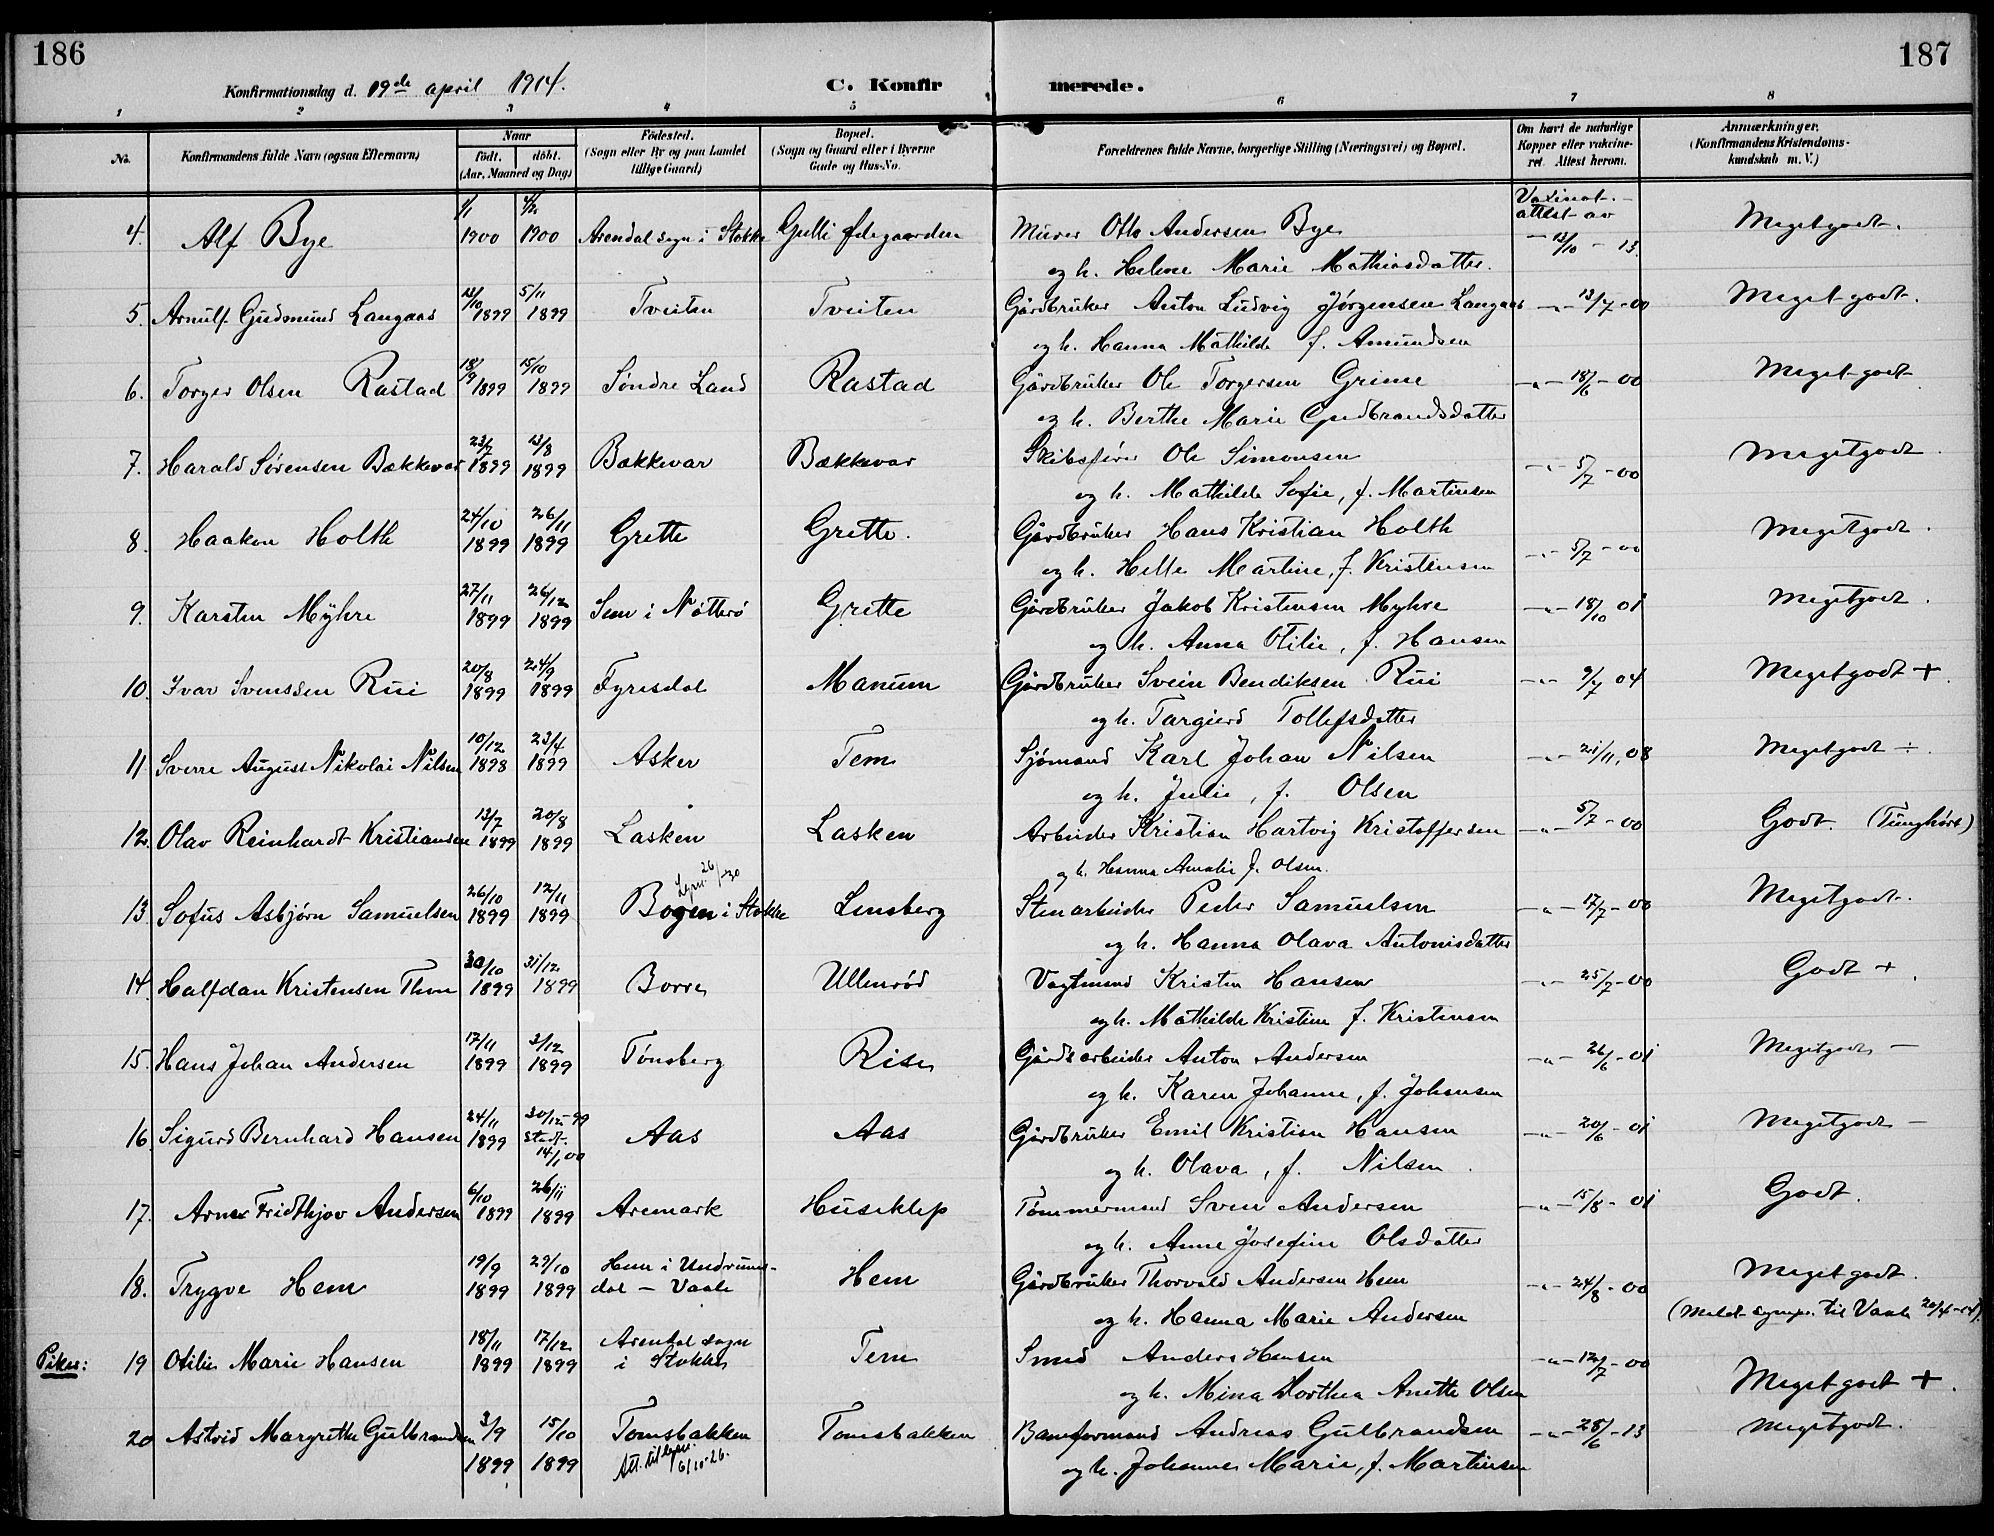 186
187
Konfirmationsdag d. 19de april 1914.
C. Konfir merede.
1 2 3 4 5 6 7 8
No.
Konfirmandens fulde Navn (ogsaa Efternavn)
Naar
födt. döbt.
(Aar, Maaned og Dag)
Födested.
(Sogn eller By og paa Landet
tillige Gaard)
Bopæl.
(Sogn og Gaard eller i Byerne
Gade og Hus-No.
Forældrenes fulde Navne, borgerlige Stilling (Næringsvei) og Bopæl.
Om havt de naturlige
Kopper eller vakcine-
ret. Attest herom.
Anmærkninger.
(Konfirmandens Kristendoms-
kundskab m. V.)
4. Alf Bye 1/1 1900 4/2 1900 Arendal sogn i Stokke Gulli ødegaarden Murer Otto Andersen Bye Vaxinat. attest av 13/10 - 13 Megetgodt.
og h. Helene Marie Mathiasdatter.
5. Arnulf Gudmund Langaas 13/10 1899 5/11 1899 Tveiten Tveiten Gårdbruker Anton Ludvig Jørgensen Langaas -"- 13/7 - 00 Meget godt.
og h. Hanna Mathilde f. Amundsen
6. Torger Olsen Rastad 18/9 1899 15/10 1899 Søndre Land Rastad Gårdbruker Ole Torgersen Grime -"- 18/6 - 00 Meget godt
og h. Berthe Marie Gudbrandsdatter
7. Harald Sørensen Bækkevar 23/7 1899 13/8 1899 Bækkevar Bækkevar Skibsfører Ole Simonsen -"- 5/7 - 00 Megetgodt.
og h. Mathilde Sofie, f. Martinsen
8. Haaken Holth 24/10 1899 26/11 1899 Grette Grette. Gårdbruker Hans Kristian Holth -"- 5/7 - 00 Megetgodt.
og h. Helle Martine, f. Kristensen
9. Karsten Myhre 27/11 1899 26/12 1899 Sem i Nøtterø Grette Gårdbruker Jakob Kristensen Myhre -"- 18/10 01 Megetgodt.
og h. Anna Otilie, f. Hansen
10. Ivar Svenssen Rui 20/8 1899 24/9 1899 Fyrisdal Manum Gårdbruker Svein Bendiksen Rui -"- 9/7 04 Megetgodt +.
og h. Targjerd Tollefsdatter
11. Sverre August Nikolai Nilsen 10/12 1898 23/4 1899 Asker Tem Sjømand Karl Johan Nilsen -"- 21/11, 08 Megetgodt ÷.
og h. Julie, f. Olsen
12. Olav Reinhardt Kristiansen 13/7 1899 20/8 1899 Lasken Lasken Arbeider Kristian Hartvig Kristoffersen -"- 5/7 - 00 Godt. (Tunghørt)
og h. Hanna Amalie f. Olsen.
13. Sofus Asbjørn Samuelsen 26/10 1899 12/11 1899 Bogen i Stokke Linsberg Stenarbeider Peder Samuelsen -"- 17/7 - 00 Megetgodt.
og h. Hanna Olava Antonisdatter
14. Halfdan Kristensen Thon 30/10 1899 31/12 1899 Borre Ullenrød Vogtmand Kristen Hansen -"- 25/7 - 00 Godt +.
og h. Mathilde Kristine f. Kristensen
15. Hans Johan Andersen 17/11 1899 3/12 1899 Tønsberg Rise Gårdsarbeider Anton Andersen -"- 26/6 - 01 Megetgodt -
og h. Karen Johanne, f. Johansen
16. Sigurd Bernhard Hansen 24/11 1899 30/12 - 99 Stadf. 14/1 00 Aas Aas Gårdbruker Emil Kristian Hansen -"- 20/6 - 01 Megetgodt -
og h. Olava, f. Nilsen.
17. Arne Fridthjov Andersen 6/10 1899 26/11 1899 Aremark Huseklep Tømmermand Sven Andersen -"- 15/8 - 01 Godt.
og h. Anne Josefine Olsdatter
18. Trygve Hem 19/9 1899 29/10 1899 Hem i Undrums-dal - Vaale Hem Gårdbruker Thorvald Andersen Hem -"- 24/8 - 00 Meget godt.
og h. Hanna Marie Andersen til Vaale 20/4-14).
Piker: 19 Otilie Marie Hansen 18/11 1899 17/12 1899 Arendal sogn i Stokke Tem Smed Anders Hansen -"- 12/7 - 00 Megetgodt +.
og h. Mina Dorthea Anette Olsen
20 Astrid Margrethe Gulbrandsen 3/9 1899 15/10 1899 Tomsbakken Tomsbakken Baneformand Andreas Gulbrandsen -"- 28/6 - 13 Megetgodt.
Att. til lysn. 6/10-26. og h. Johanne Marie, f. Martinsen